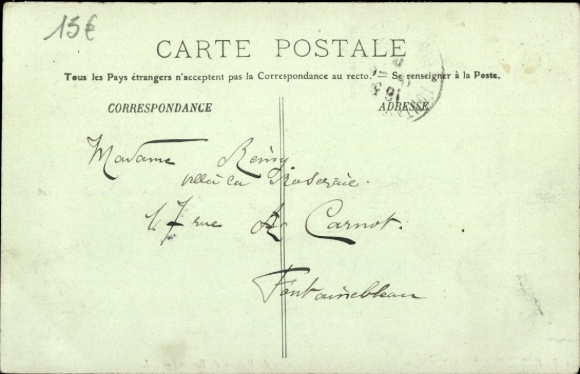 15€
CARTE POSTALE
Tous les Pays étrangers n'acceptent pas la Correspondance au recto. — Se renseigner à la Poste.
CORRESPONDANCE
ADRESSE
Madame
villa la Roseraie
47 rue Carnot.
Fontainebleau